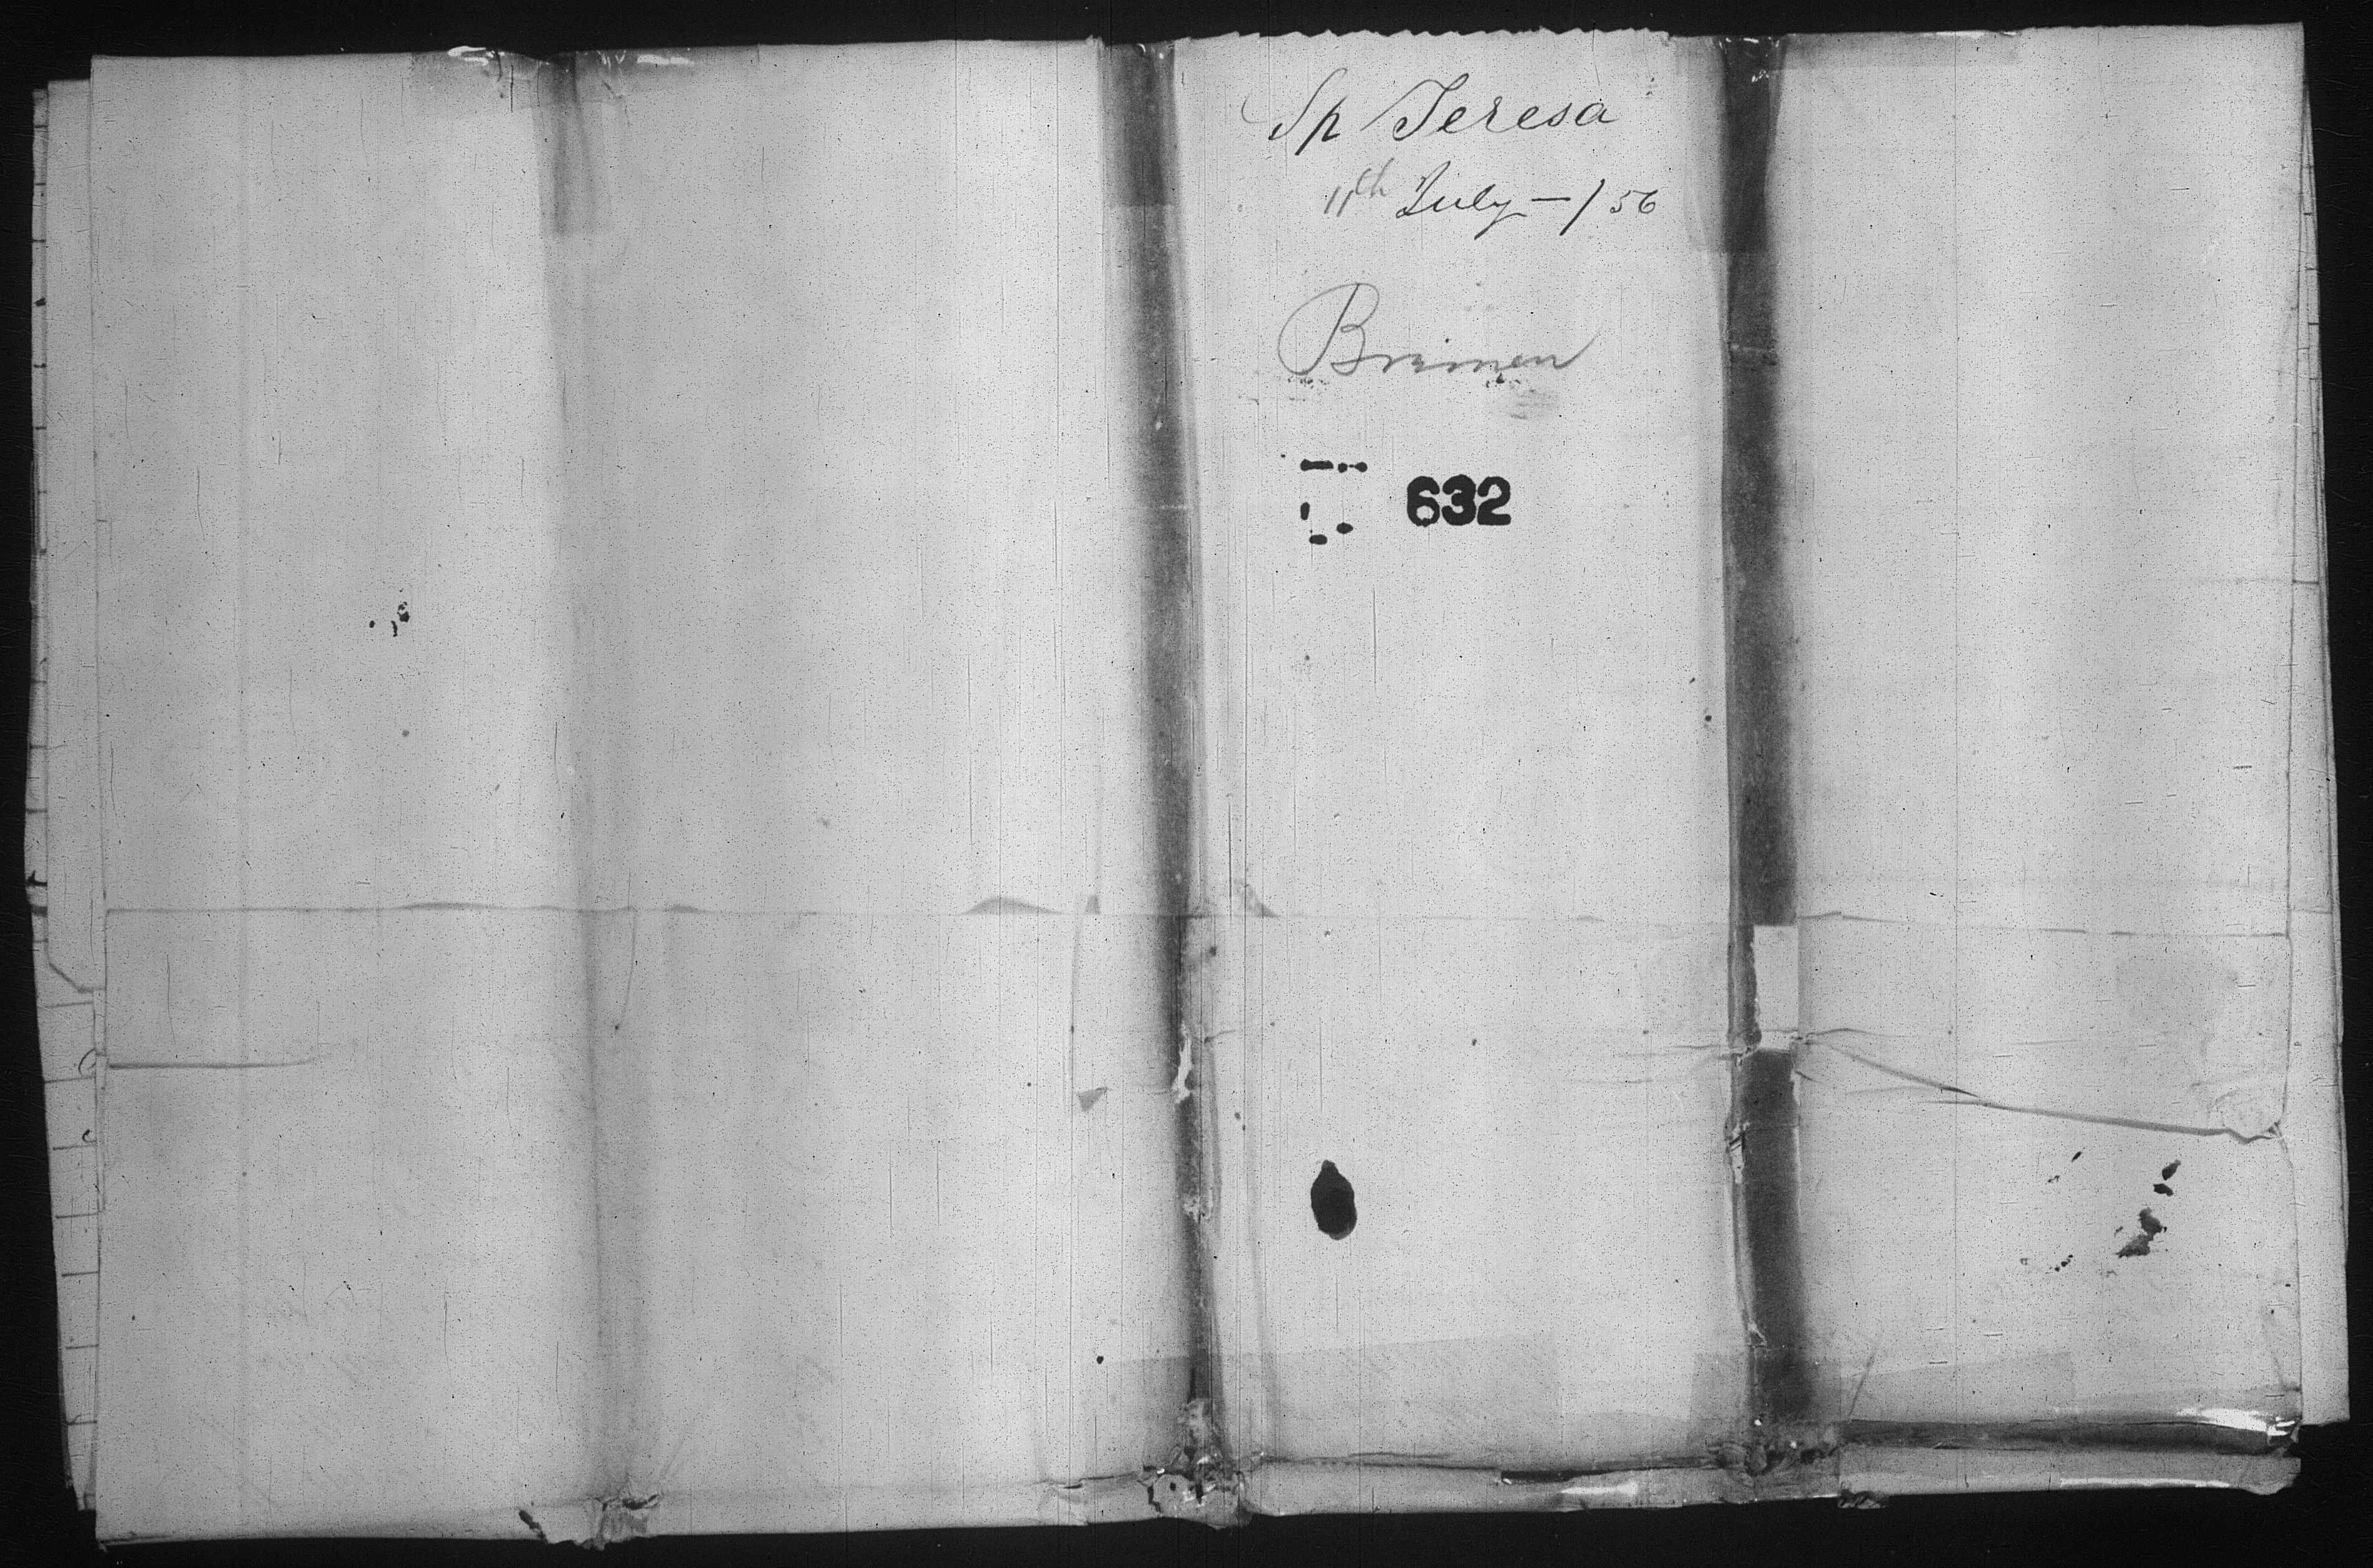 Sp Teresa
11th July—/56
Bremen
632